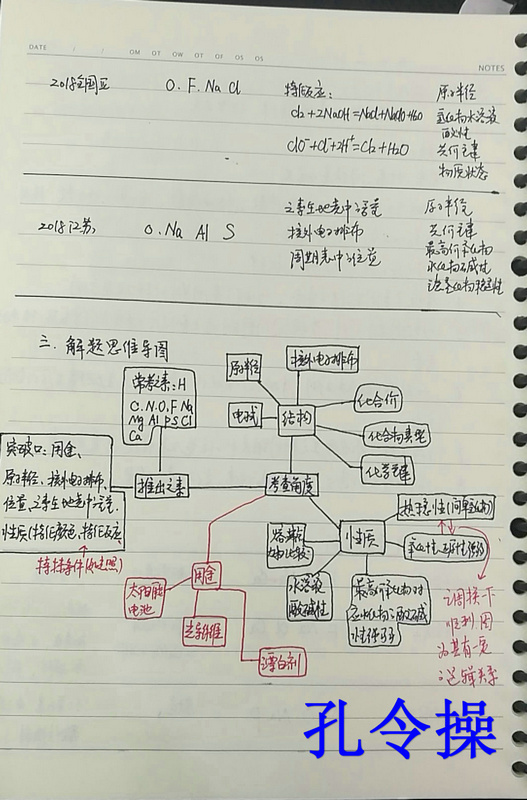 DATE / /
NOTES
2018全国II O.F.Na Cl 特征反应: 原子半径
Cl₂+2NaOH=NaCl+NaClO+H₂O 氢化物水溶液
酸性
ClO⁻+Cl⁻+2H⁺=Cl₂+H₂O 共价键
物质状态
元素在地壳中含量 原子半径
2018江苏, O.Na Al S 核外电子排布 共价键
周期表中位置 最高价氧化物
水化物碱性
氢化物稳定性
三.解题思维导图
核外电子排布
原子半径
常考元素:H
C.N.O.F Na
Mg Al P S Cl
Ca
化合价
电式
结构
化合物类型
化学键
突破口:用途、
原子半径、核外电子排布、
位置、元素在地壳中含量、
性质(特征颜色,特征反应)
特殊条件(如光照)
推出元素
考查角度
热稳定性(简单氢化物)
性质
水溶液
酸碱性
最高价氧化物对
应水化物酸碱
性强弱
用途
太阳能
电池
光导纤维
漂白剂
调换一下
顺利因
为其有一定
逻辑关系
孔令操